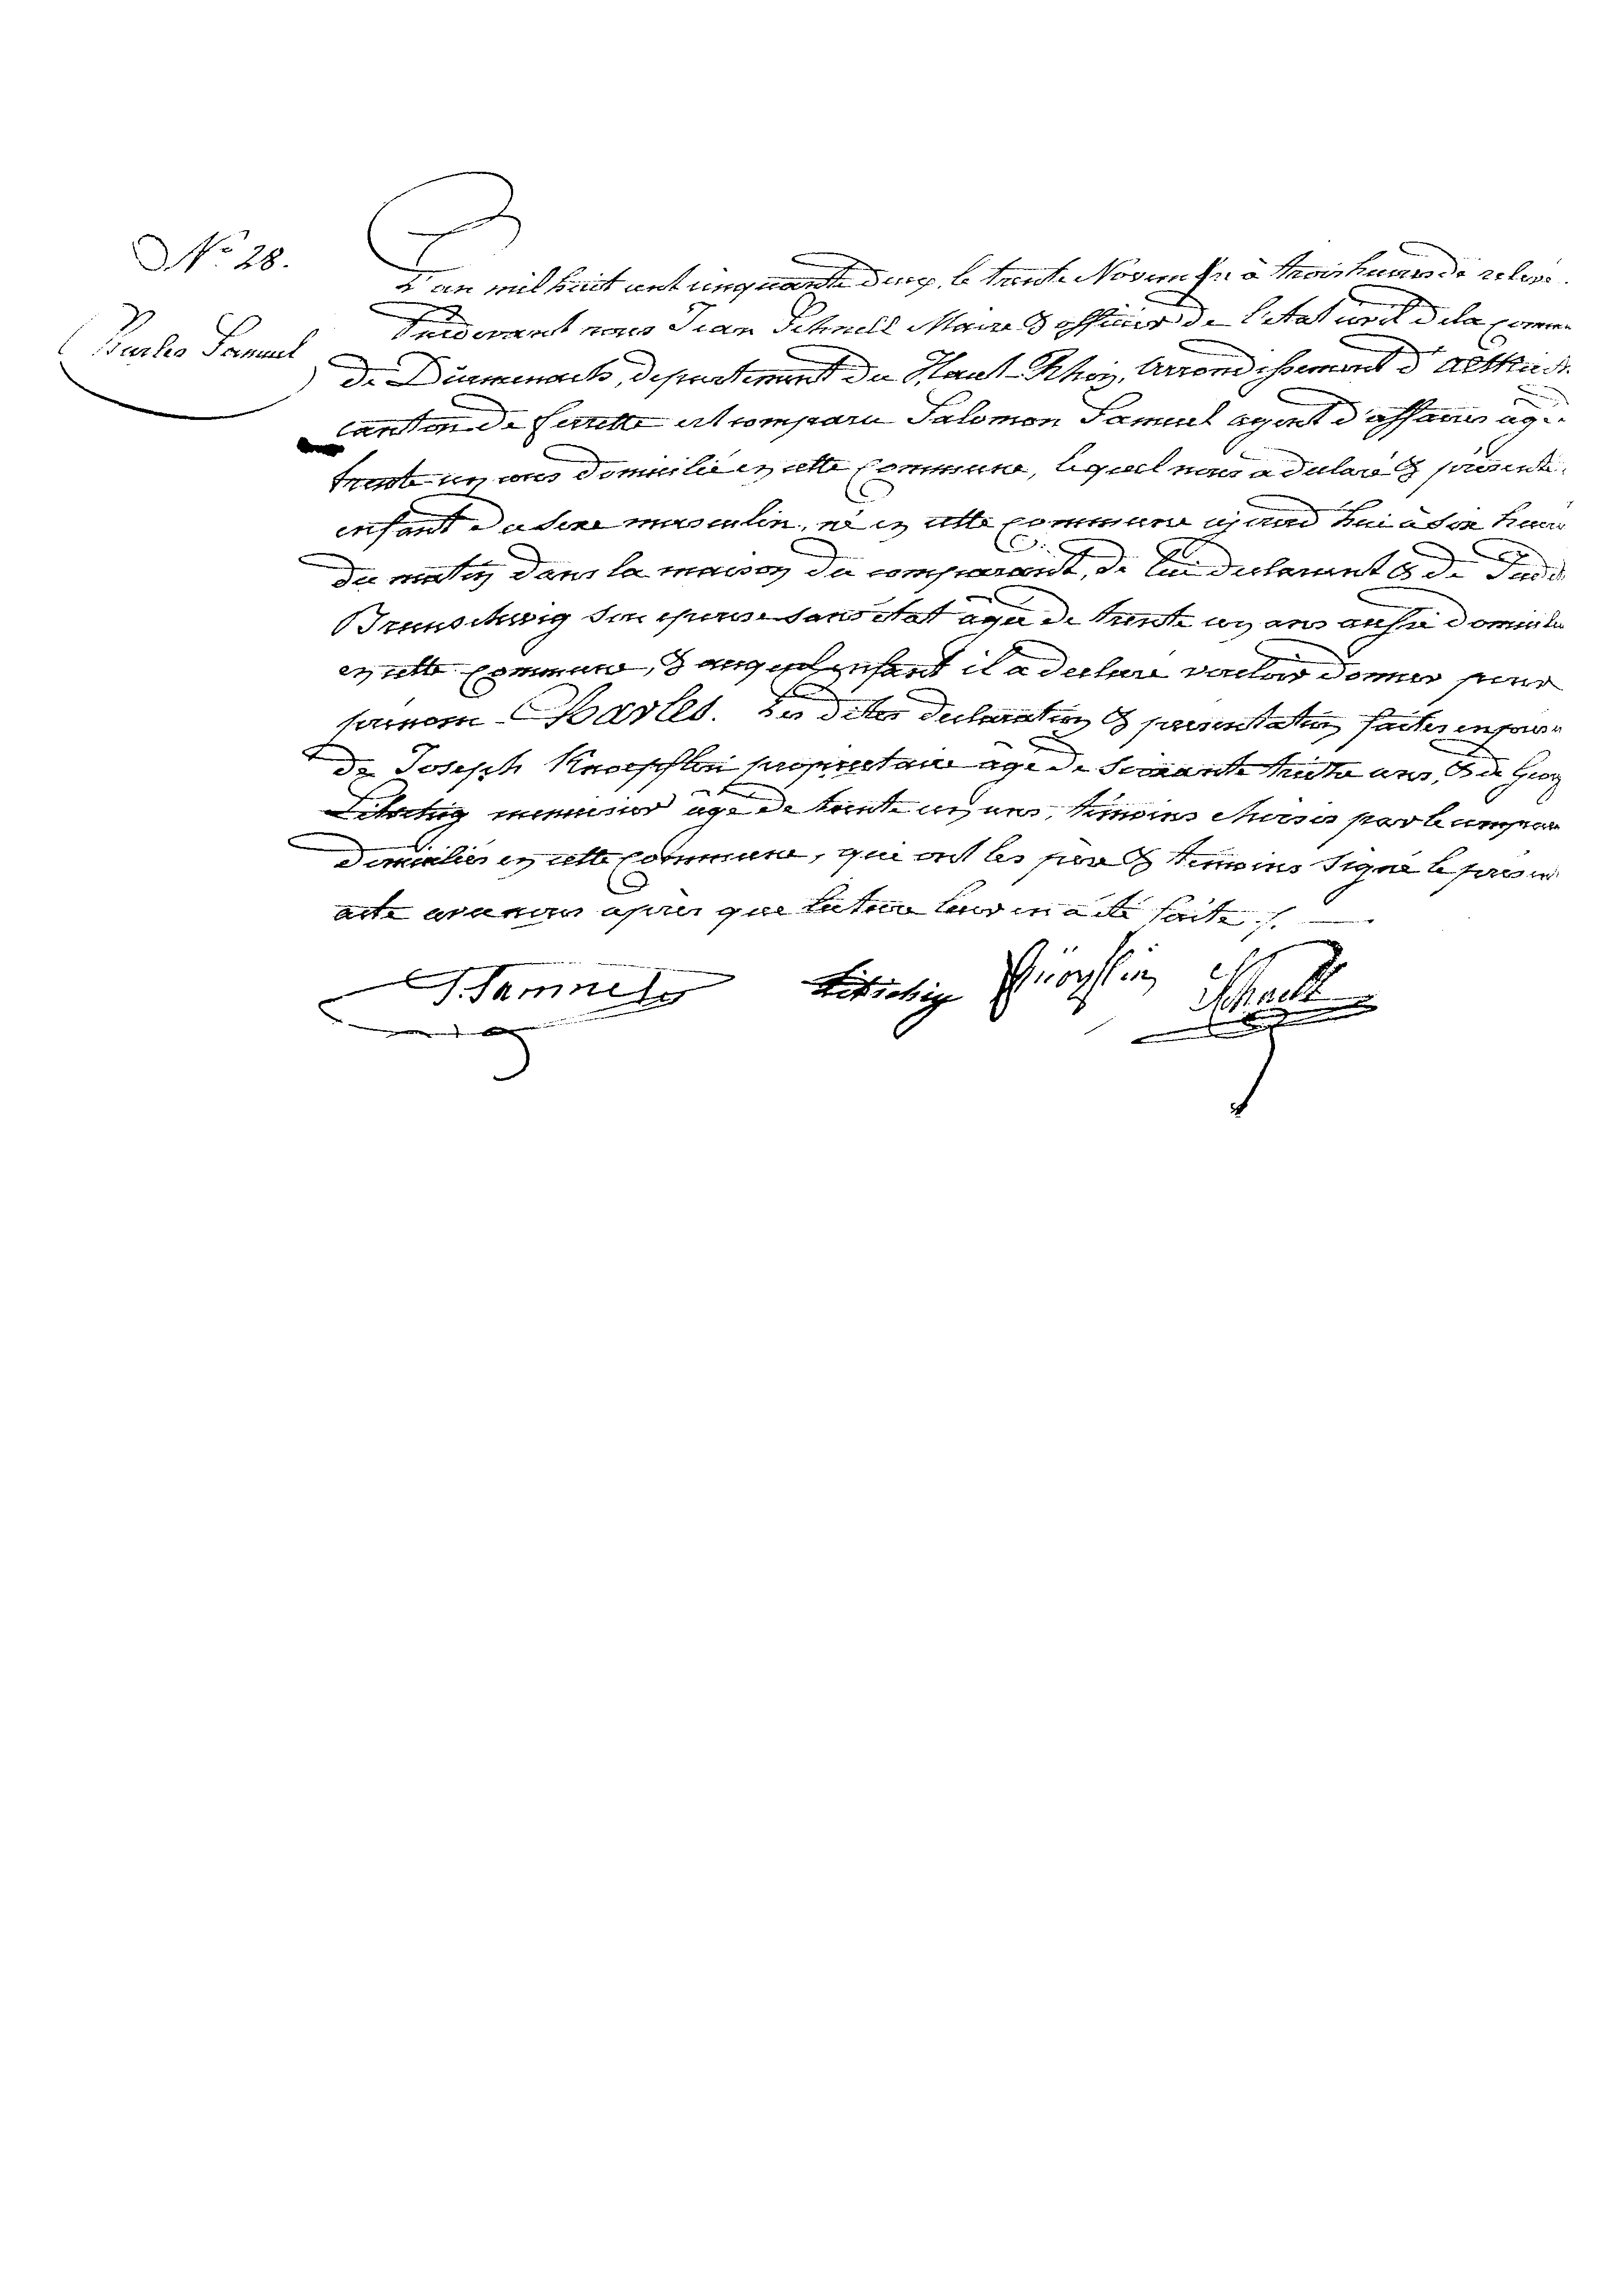 N° 28.
Charles Samuel
L'an mil huit cent cinquante deux, le trente Novembre à trois heures de relevé.
Pardevant nous Jean Schnell Maire & officier de l'etat civil de la comm
de Dürmenach, departement du Haut-Rhin, Arrondissement d'Altkirch
canton de Ferrette est comparu Salomon Samuel agent d'affaires agé
trente un ans domicilié en cette commune, lequel nous a declaré & présenté
enfant du sexe masculin, né en cette commune aujourd'hui à six heures
du matin dans la maison du comparant, de lui declarant & de
Brunschwig son epouse sans etat agée de trente un ans aussi domicilié
en cette commune, & auquel enfant il a declaré vouloir donner pour
prenom Charles. Les dites declaration & presentation faites en pres
de Joseph Knoepflin proprietaire agé de soixante treize ans, & de Georg
Litschig menuisier agé de trente un ans, témoins choisis par le compar
domiciliés en cette commune, qui ont les pere & temoins signé le présent
acte avec nous après que lecture leur en a été faite /.
S. Samuel Litschig Knöpflin Schnell